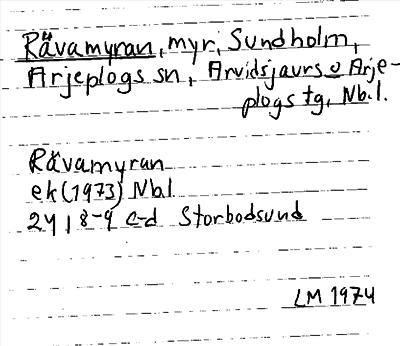 Rävamyran, myr, Sundholm,
Arjeplogs sn, Arvidsjaurs o Arje-
plogs tg, Nb.l.
Rävamyran
ek (1973) Nbl
24 I 8-9 c-d Storbodsund
LM 1974